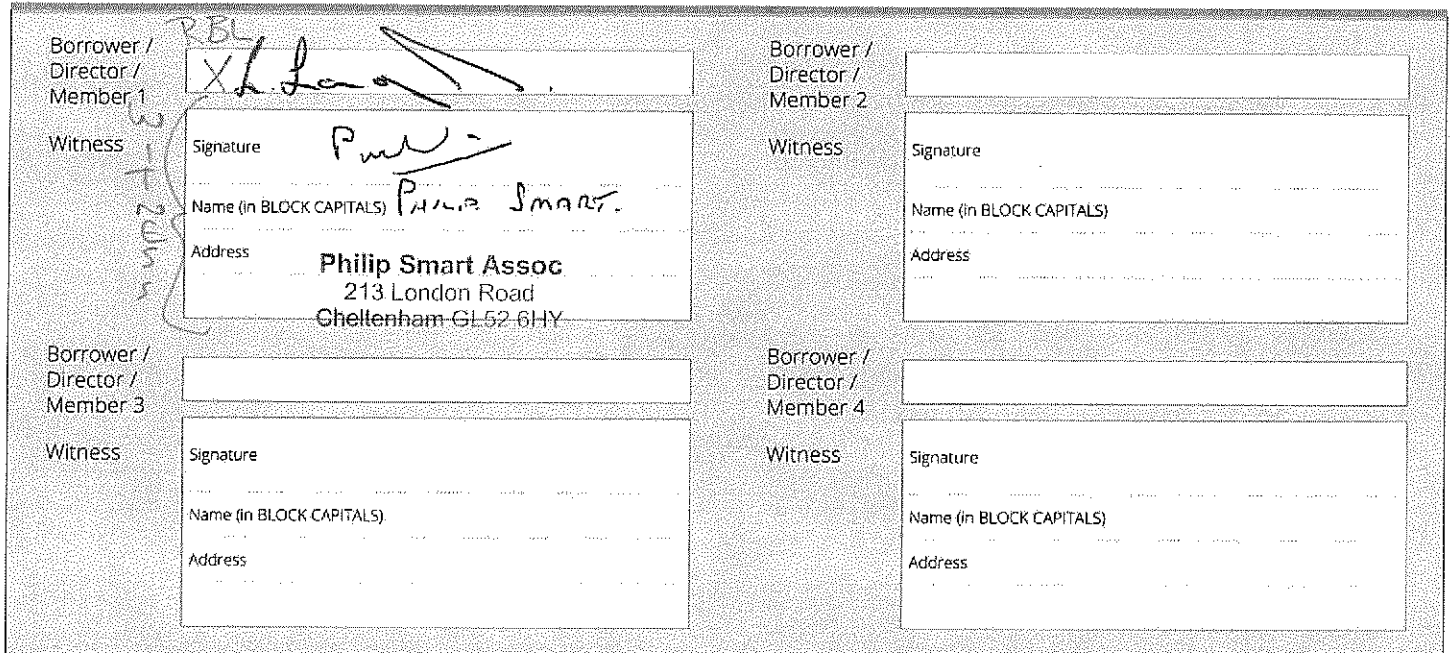 RBL
Borrower /
Director /
Member 1
X
Witness
Signature
Name (in BLOCK CAPITALS) PHILIP SMART.
Address
Philip Smart Assoc
213 London Road
Cheltenham GL52 6HY
Borrower /
Director /
Member 2
Witness
Signature
Name (in BLOCK CAPITALS)
Address
Borrower /
Director /
Member 3
Witness
Signature
Name (in BLOCK CAPITALS)
Address
Borrower /
Director /
Member 4
Witness
Signature
Name (in BLOCK CAPITALS)
Address